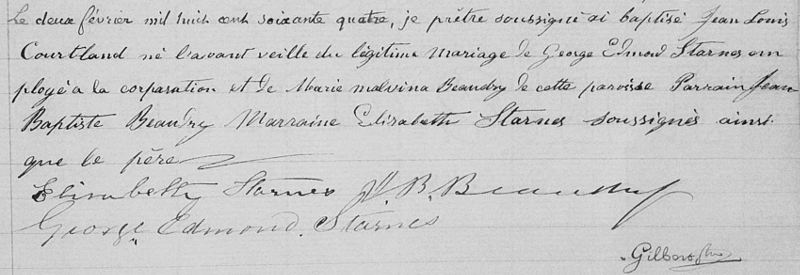 Le deux février mil huit cent soixante quatre, je prêtre soussigné ai baptisé Jean Louis
Courtland né l'avant veille du légitime mariage de George Edmond Starnes em
ployé a la corporation et de Marie malvina Beaudry de cette paroisse Parrain Jean
Baptiste Beaudry Marraine Elisabeth Starnes soussignés ainsi
que le père
Elisabeth Starnes J. B. Beaudry
George Edmond Starnes